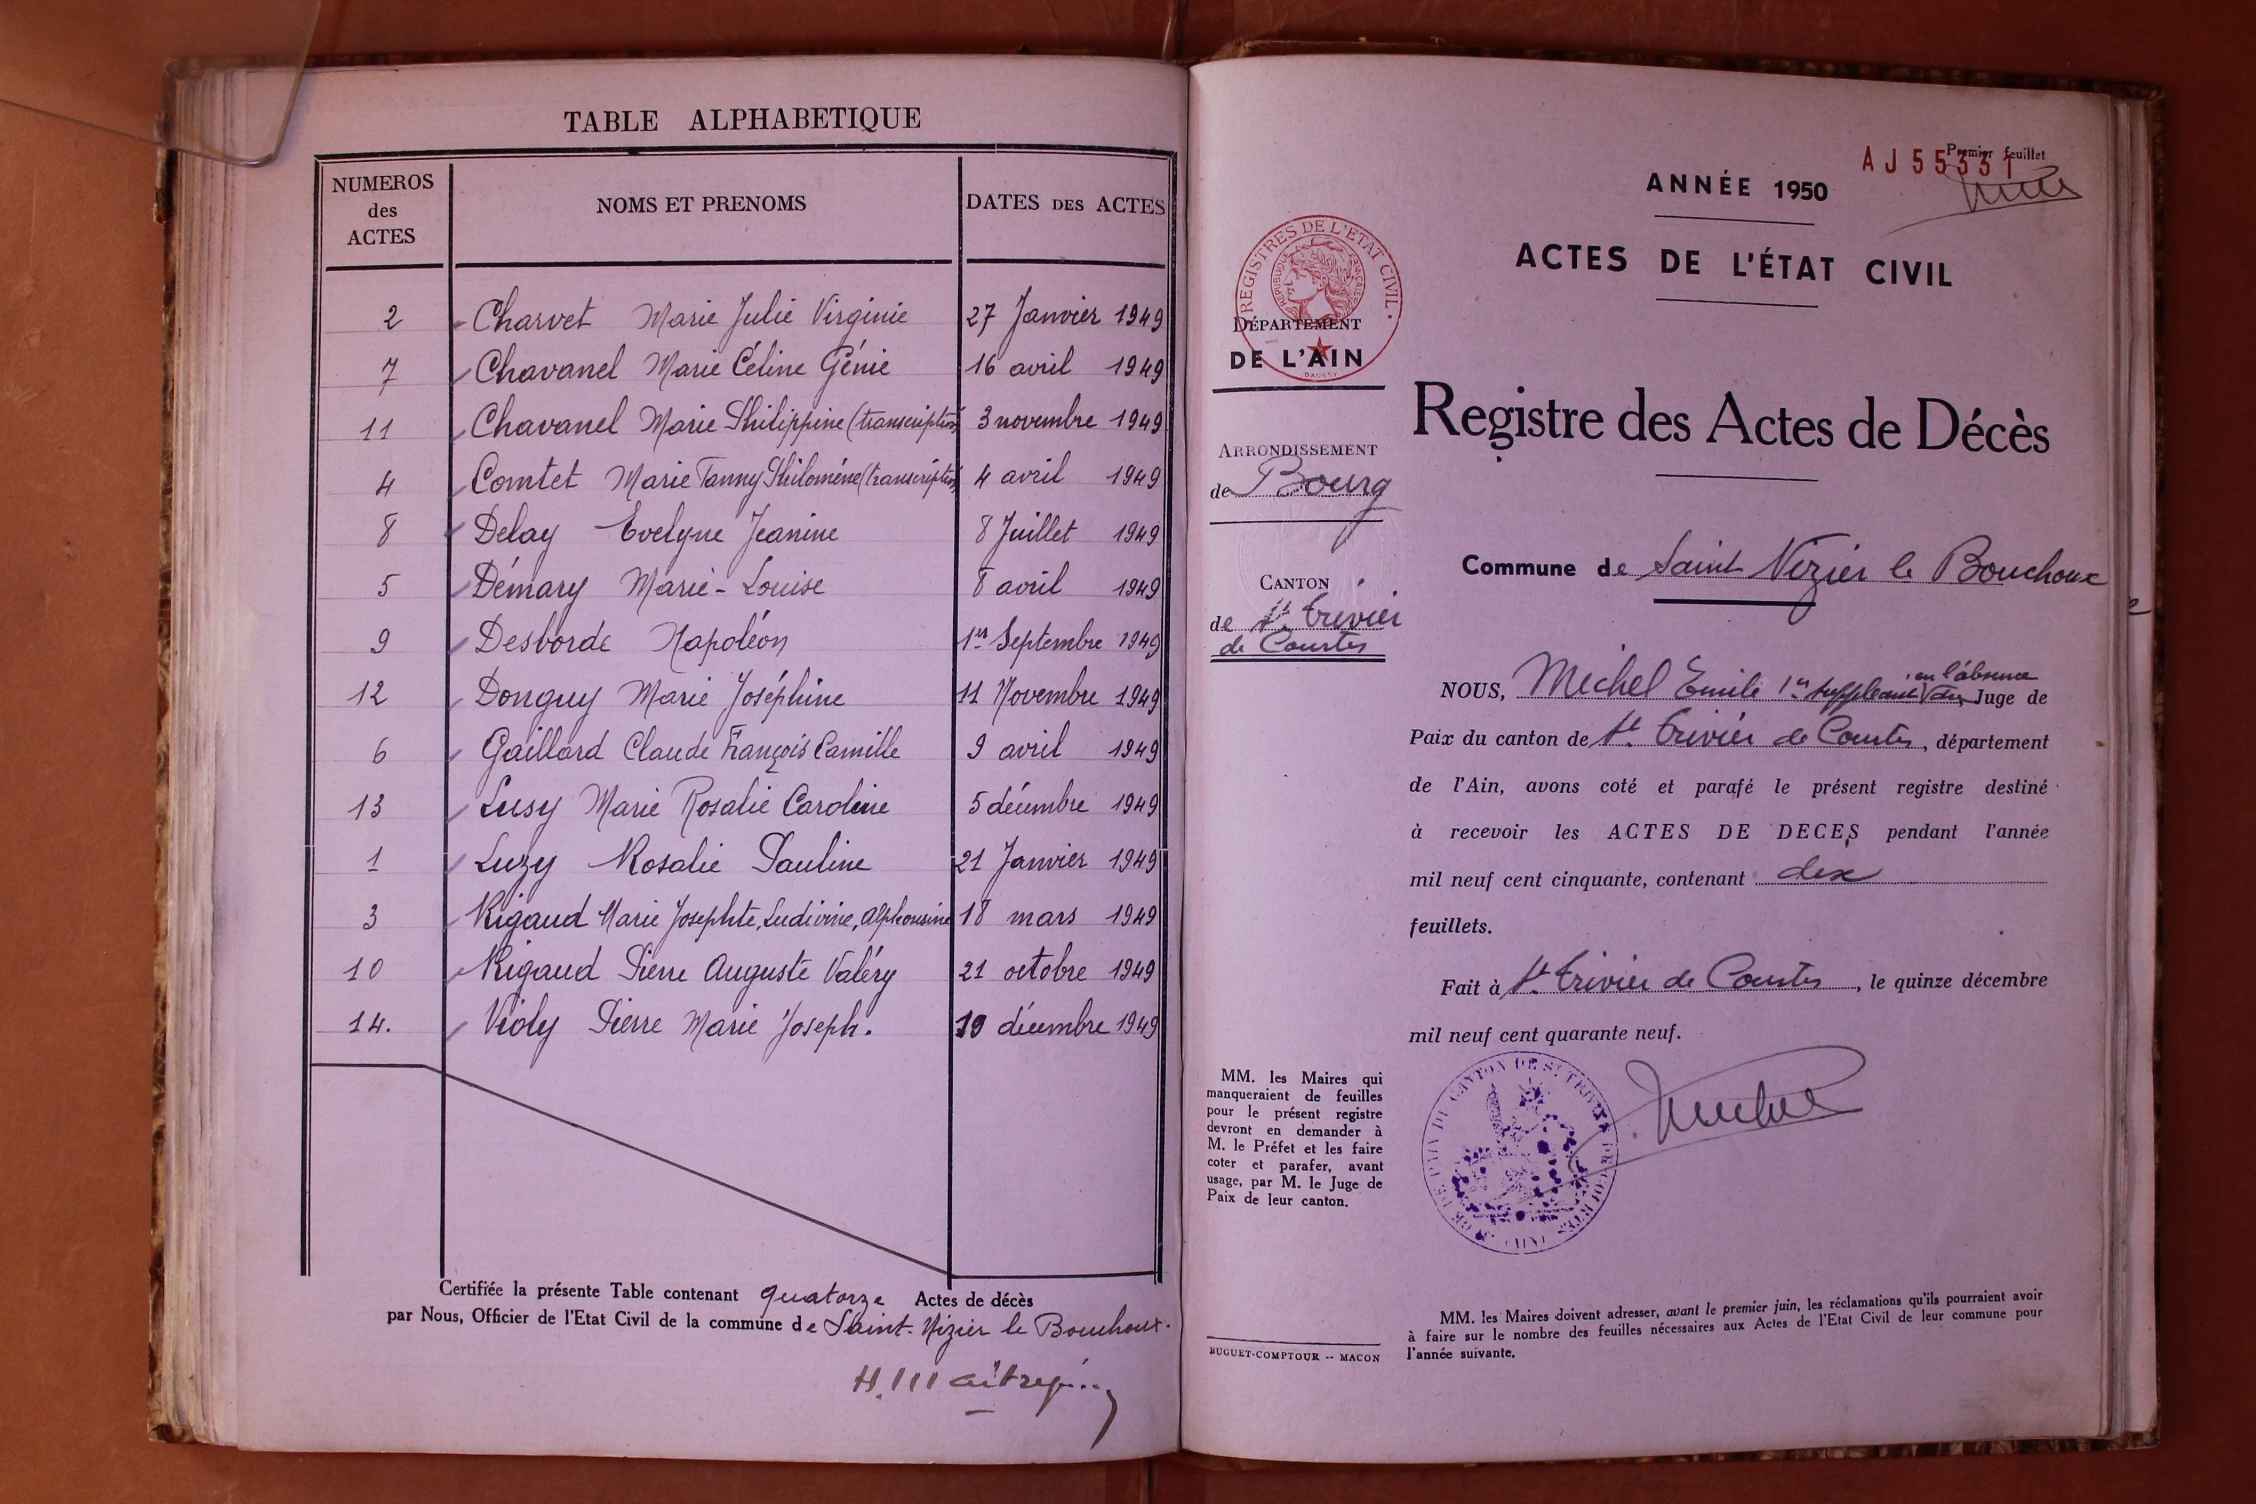 TABLE ALPHABETIQUE
NUMEROS des ACTES NOMS ET PRENOMS DATES DES ACTES
2 Charvet Marie Julie Virginie 27 Janvier 1949
7 Chavanel Marie Céline Génie 16 avril 1949
11 Chavanel Marie Philippine (transcription) 3 novembre 1949
4 Comtet Marie Fanny Philomène (transcription) 4 avril 1949
8 Delay Evelyne Jeanine 8 Juillet 1949
5 Démary Marie-Louise 8 avril 1949
9 Desborde Napoléon 1er Septembre 1949
12 Donguy Marie Joséphine 11 Novembre 1949
6 Gaillard Claude François Camille 9 avril 1949
13 Lusy Marie Rosalie Caroline 5 décembre 1949
1 Luzy Rosalie Pauline 21 Janvier 1949
3 Rigaud Marie Josephte, Ludivine, Alphonsine 18 mars 1949
10 Rigaud Pierre Auguste Valéry 21 octobre 1949
14. Violy Pierre Marie Joseph. 10 décembre 1949
Certifiée la présente Table contenant quatorze Actes de décès
par Nous, Officier de l'Etat Civil de la commune de Saint-Nizier le Bouchoux.
Premier feuillet
AJ 55331
ANNÉE 1950
ACTES DE L'ÉTAT CIVIL
REGISTRES DE L'ÉTAT CIVIL
RÉPUBLIQUE FRANÇAISE
DÉPARTEMENT
DE L'AIN
ARRONDISSEMENT
de Bourg
CANTON
de St. Trivier
de Courtes
MM. les Maires qui
manqueraient de feuilles
pour le présent registre
devront en demander à
M. le Préfet et les faire
coter et parafer, avant
usage, par M. le Juge de
Paix de leur canton.
BUGUET-COMPTOUR -- MACON
Registre des Actes de Décès
Commune de Saint Nizier le Bouchoux
NOUS, Michel Emile 1er suppléant en l'absence du Juge de
Paix du canton de St. Trivier de Courtes, département
de l'Ain, avons coté et parafé le présent registre destiné
à recevoir les ACTES DE DECES pendant l'année
mil neuf cent cinquante, contenant dix
feuillets.
Fait à St. Trivier de Courtes, le quinze décembre
mil neuf cent quarante neuf.
MM. les Maires doivent adresser, avant le premier juin, les réclamations qu'ils pourraient avoir
à faire sur le nombre des feuilles nécessaires aux Actes de l'Etat Civil de leur commune pour
l'année suivante.